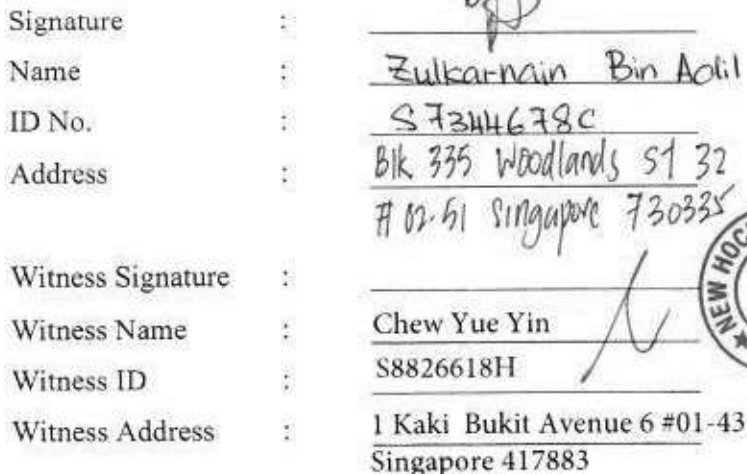 Signature :
Name : Zulkarnain Bin Adil
ID No. : S7344678C
Address : Blk 335 Woodlands St 32
#02-51 Singapore 730335
Witness Signature :
Witness Name : Chew Yue Yin
Witness ID : S8826618H
Witness Address : 1 Kaki Bukit Avenue 6 #01-43
Singapore 417883
NEW HOC